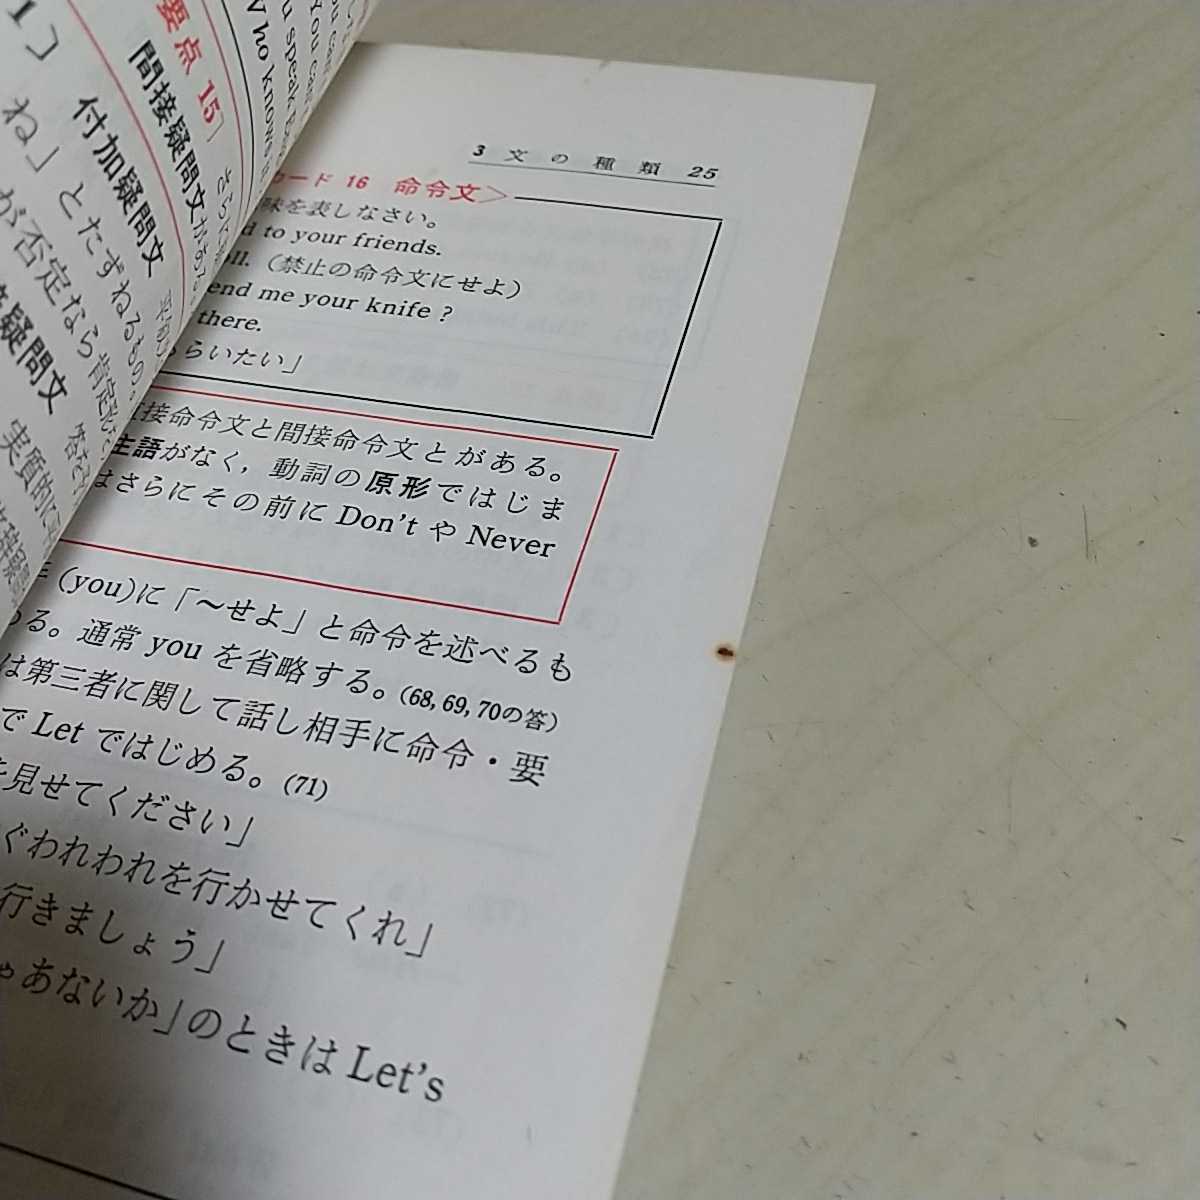 要点 15〕
間接疑問文が
付加疑問文
ね」とたずねるもの。
が否定なら肯定
疑問文
Who knows
3 文の種類 25
カード 16 命令文〉
味を表しなさい。
to your friends.
(禁止の命令文にせよ)
end me your knife ?
there.
らいたい」
接命令文と間接命令文とがある。
主語がなく，動詞の原形ではじま
はさらにその前に Don't や Never
(you)に「～せよ」と命令を述べるも
める。通常 you を省略する。(68, 69, 70の答)
は第三者に関して話し相手に命令・要
で Let ではじめる。(71)
を見せてください」
ぐわれわれを行かせてくれ」
行きましょう」
ゃあないか」のときは Let's